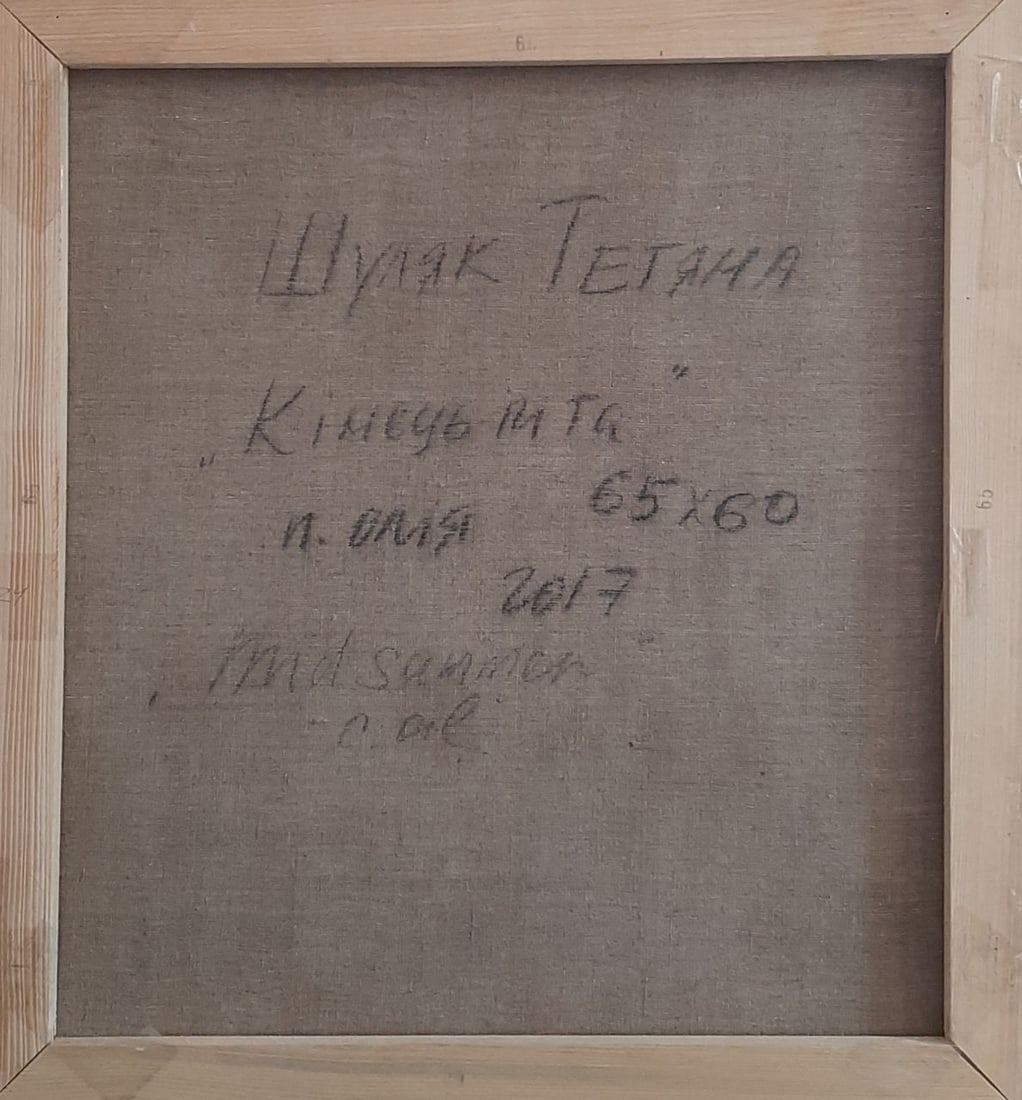 Шуляк Тетяна
„Кінець літа"
п. олія 65x60
2017
„Midsummer"
c. oil
65